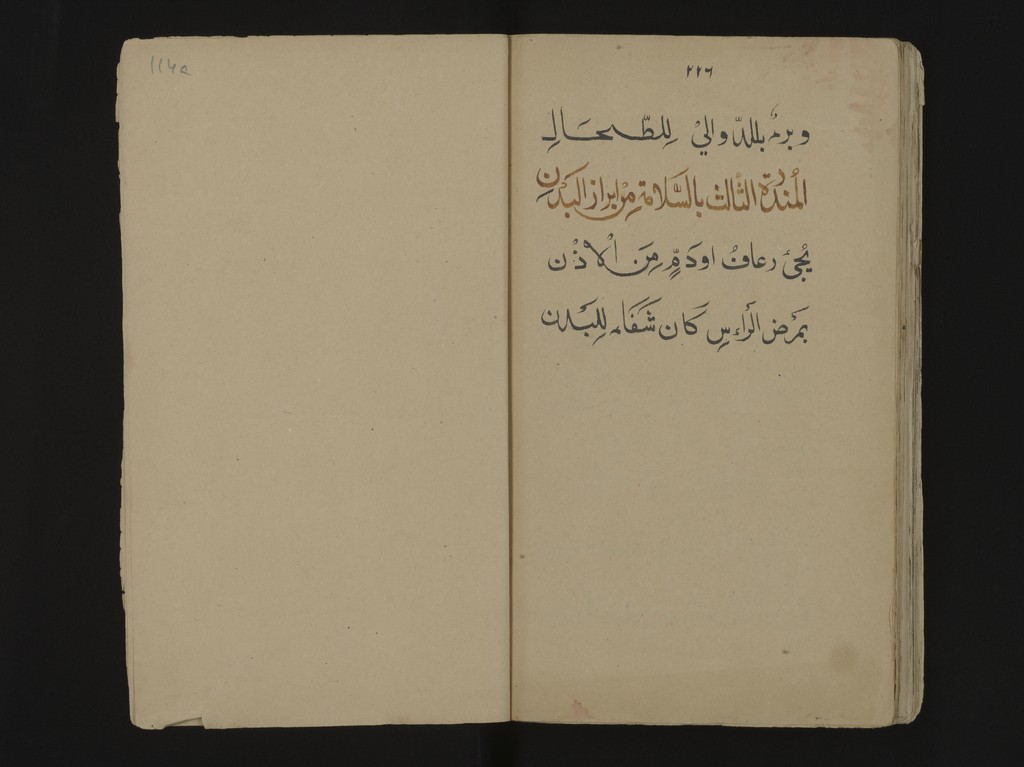 114a
٢٢٦
وبرء بللدّوالي لِلطّحَالِ
المُنذرة الثَالث بالسَّلامة مِنْ ابراز البَدَنِ
يُجيْ رعافُ اودَمٍّ مِنَ الاُذْن
بمَرَض الرَاءسِ كَان شَفَاء لِلبَدن